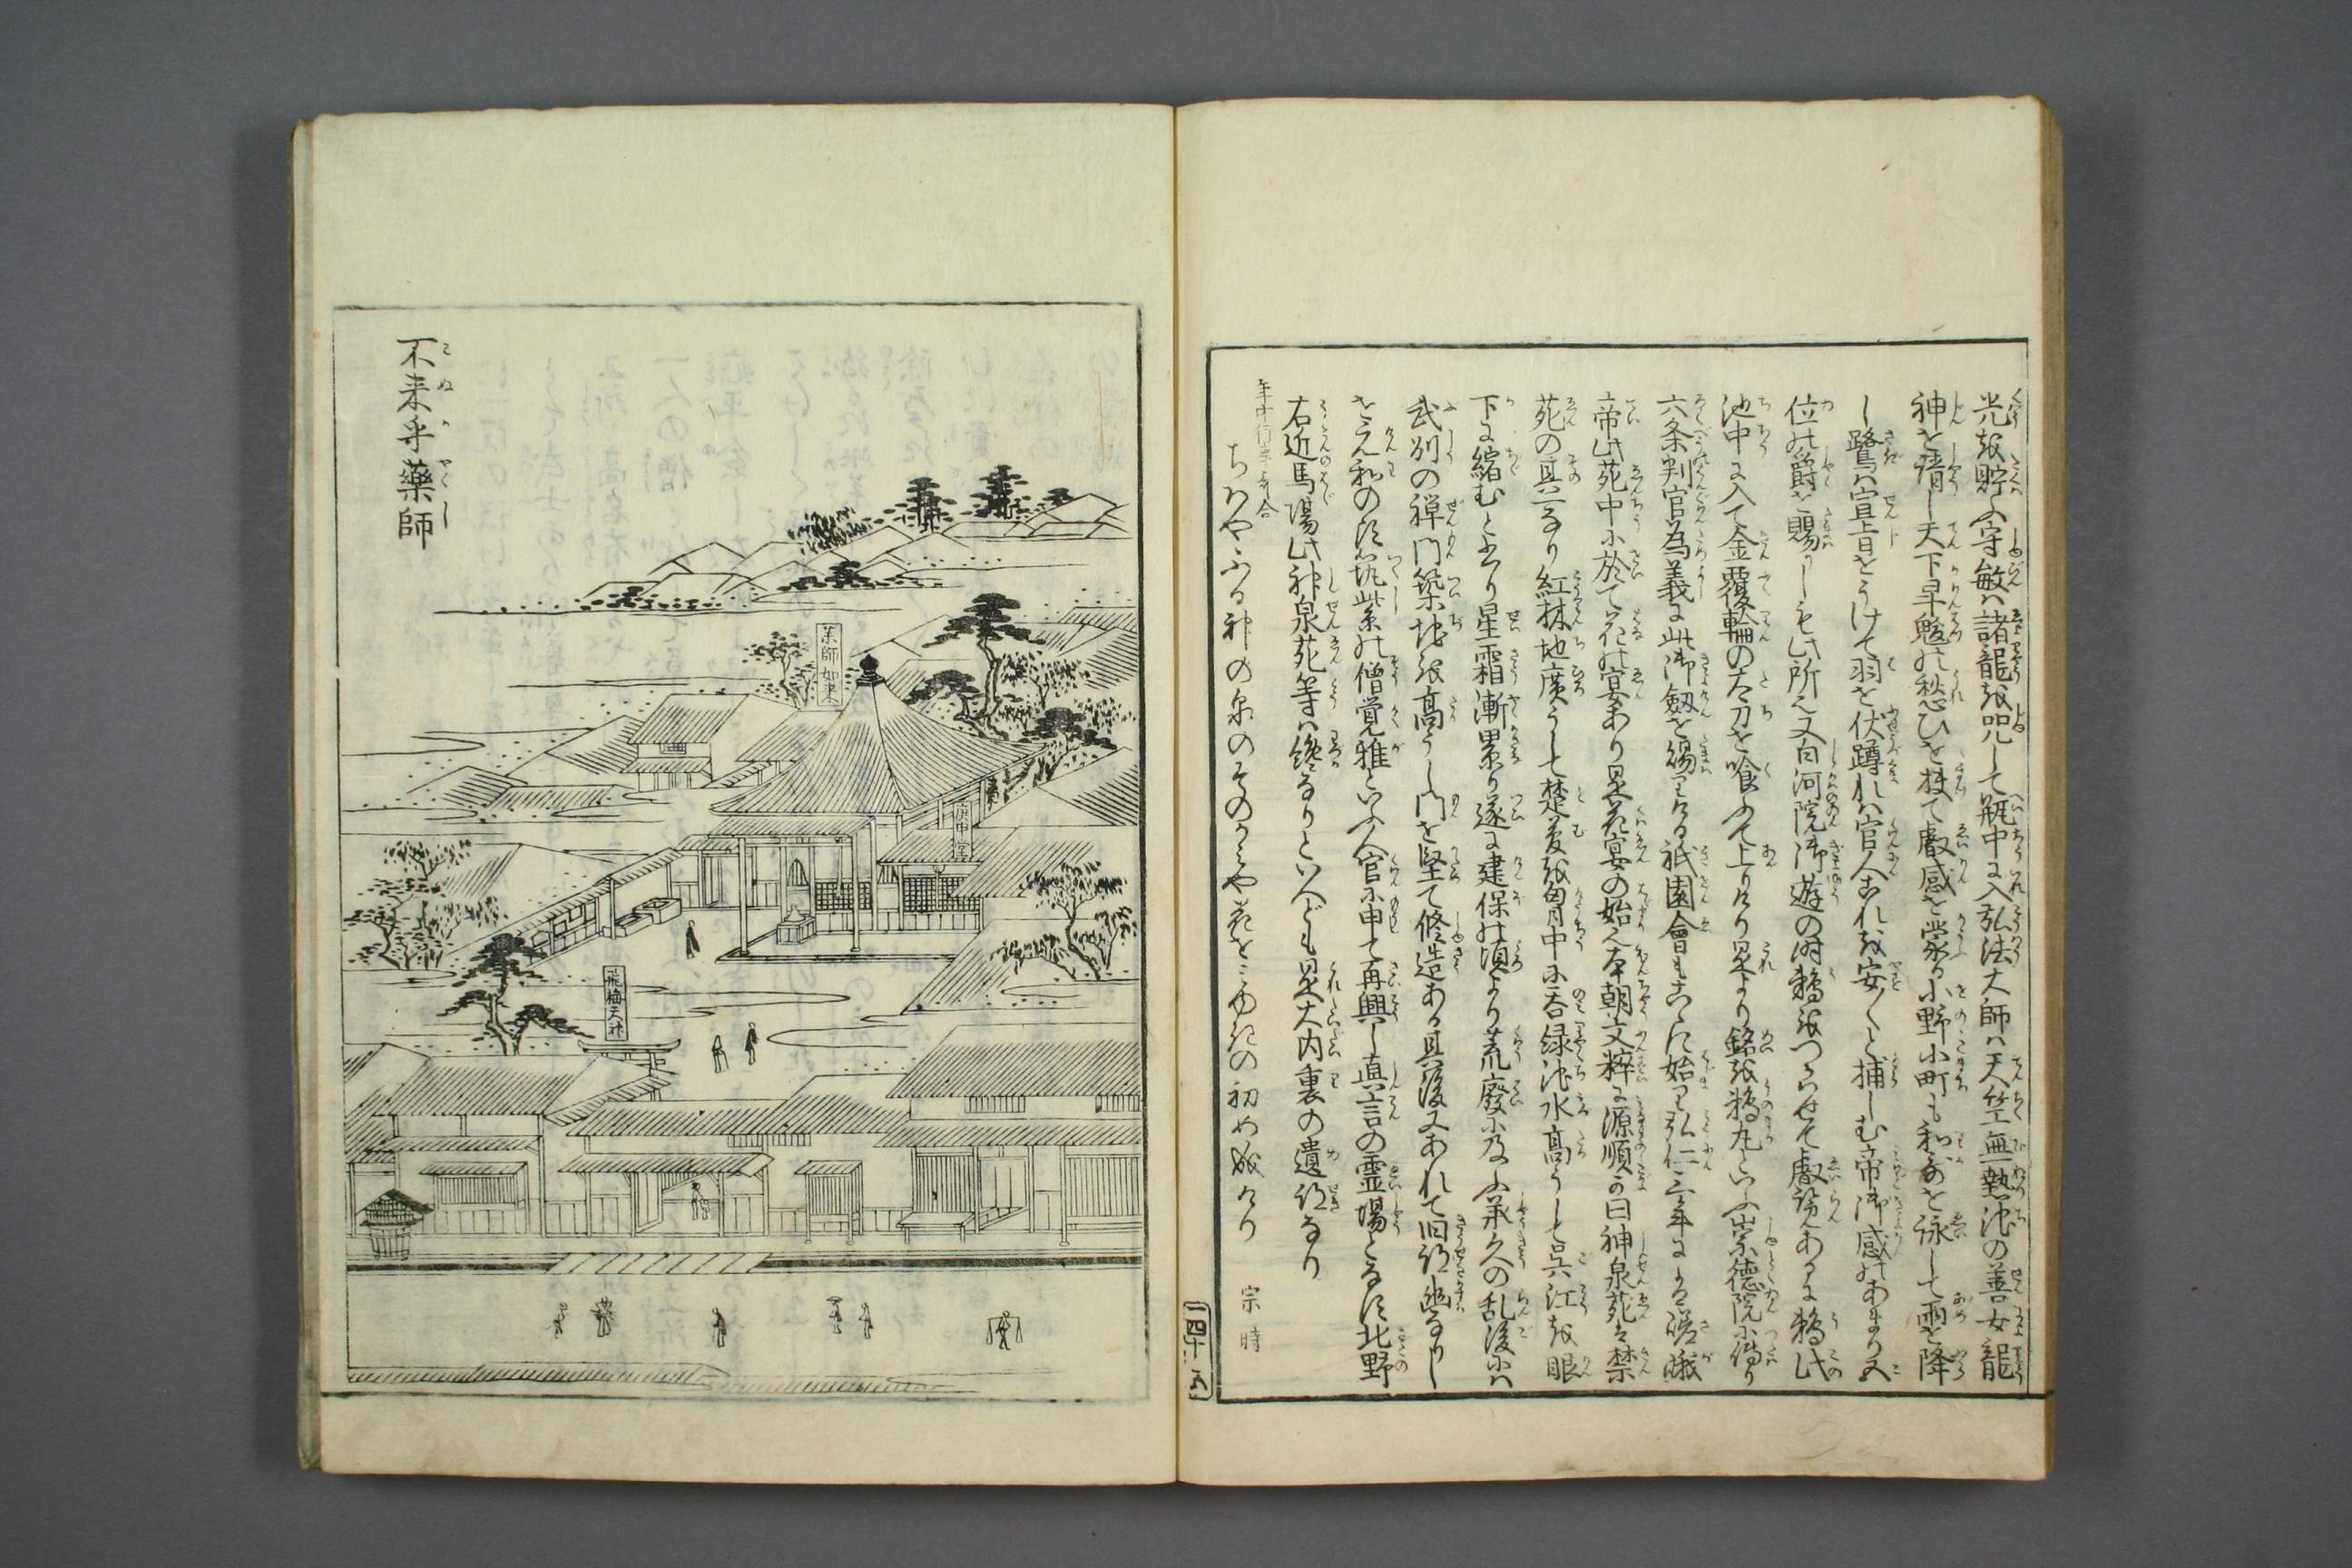 光を貯ふ守敏は諸龍を咒して瓶中に入弘法大師は天竺無熱池の善女龍
神を請し天下旱魃の愁ひを扶て叡感を蒙る小野小町も和歌を詠して雨を降
し鷺は宣旨をうけて羽を伏蹲れは官人これを安〱と捕しむ帝御感のあまり五
位の爵を賜りしも此所也又白河院御遊の時鵜をつかはせて叡覧あるに鵜此
池中に入て金覆輪の太刀を喰ふて上りけり是より銘を鵜丸といふ崇徳院に傳り
六条判官為義に此御釼を賜りける祇園會もこゝに始り弘仁三年には嵯峨
帝此苑中に於て花の宴あり是花宴の始也本朝文粹に源順か曰神泉苑は禁
苑の其一なり紅林地廣うして楚夢を胸中に呑緑池水高うして呉江を眼
下に縮むと云り星霜漸累り遂に建保の頃より荒廢に及ふ承久の乱後には
武州の禅門築地を高うし門を堅て修造ある其後又あれて旧跡幽なりし
を元和の頃筑紫の僧覚雅といふ人官に申て再興し真言の霊場となる北野
右近馬場此神泉苑等は纔なりといへども是大内裏の遺跡なり
年中行事歌合
ちはやふる神の泉のそのかみや花をみゆきの初め成けり 宗時
四十五
不来乎藥師
こぬかやくし
薬師如来
庚申堂
飛梅天神